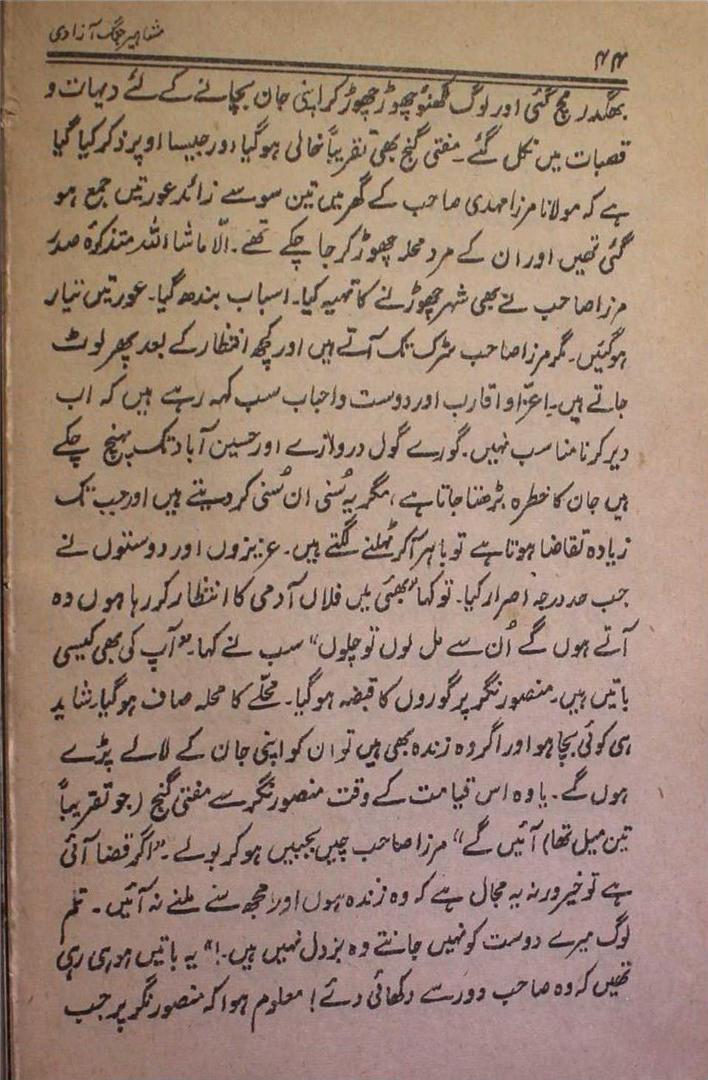 مشاہیر جنگ آزادی
۴۴
بھگدر مچ گئی اور لوگ لکھنؤ چھوڑ چھوڑ کر اپنی جان بچانے کے لئے دیہات و
قصبات میں نکل گئے۔ مفتی گنج بھی تقریباً خالی ہوگیا اور جیسا اوپر ذکر کیا گیا
ہے کہ مولانا مرزا مہدی صاحب کے گھر میں تین سو سے زائد عورتیں جمع ہو
گئی تھیں اور ان کے مرد محلہ چھوڑ کر جا چکے تھے۔ الّا ماشا اللہ متذکرہ صدر
مرزا صاحب نے بھی شہر چھوڑنے کا تہیہ کیا۔ اسباب بندھ گیا۔ عورتیں تیار
ہوگئیں۔ مگر مرزا صاحب سڑک تک آتے ہیں اور کچھ انتظار کے بعد پھر لوٹ
جاتے ہیں۔ اعزّا و اقارب اور دوست و احباب سب کہہ رہے ہیں کہ اب
دیر کرنا مناسب نہیں۔ گورے گول دروازے اور حسین آباد تک پہنچ چکے
ہیں جان کا خطرہ بڑھتا جاتا ہے، مگر یہ سُنی ان سُنی کر دیتے ہیں اور جب تک
زیادہ تقاضا ہوتا ہے تو باہر آکر ٹہلنے لگتے ہیں۔ عزیزوں اور دوستوں نے
جب حد درجہ اصرار کیا۔ تو کہا "بھئی میں فلاں آدمی کا انتظار کر رہا ہوں وہ
آتے ہوں گے اُن سے مل لوں تو چلوں" سب نے کہا۔ "آپ کی بھی کیسی
باتیں ہیں۔ منصور نگر پر گوروں کا قبضہ ہوگیا۔ محلّے کا محلہ صاف ہوگیا۔ شاید
ہی کوئی بچا ہو اور اگر وہ زندہ بھی ہیں تو ان کو اپنی جان کے لالے پڑے
ہوں گے۔ یا وہ اس قیامت کے وقت منصور نگر سے مفتی گنج (جو تقریباً
تین میل تھا) آئیں گے" مرزا صاحب چیں بجبیں ہو کر بولے۔ "اگر قضا آئی
ہے تو خیر ورنہ یہ مجال ہے کہ وہ زندہ ہوں اور مجھ سے ملنے نہ آئیں۔ تم
لوگ میرے دوست کو نہیں جانتے وہ بزدل نہیں ہیں۔!" یہ باتیں ہو ہی رہی
تھیں کہ وہ صاحب دور سے دکھائی دئے! معلوم ہوا کہ منصور نگر پر جب